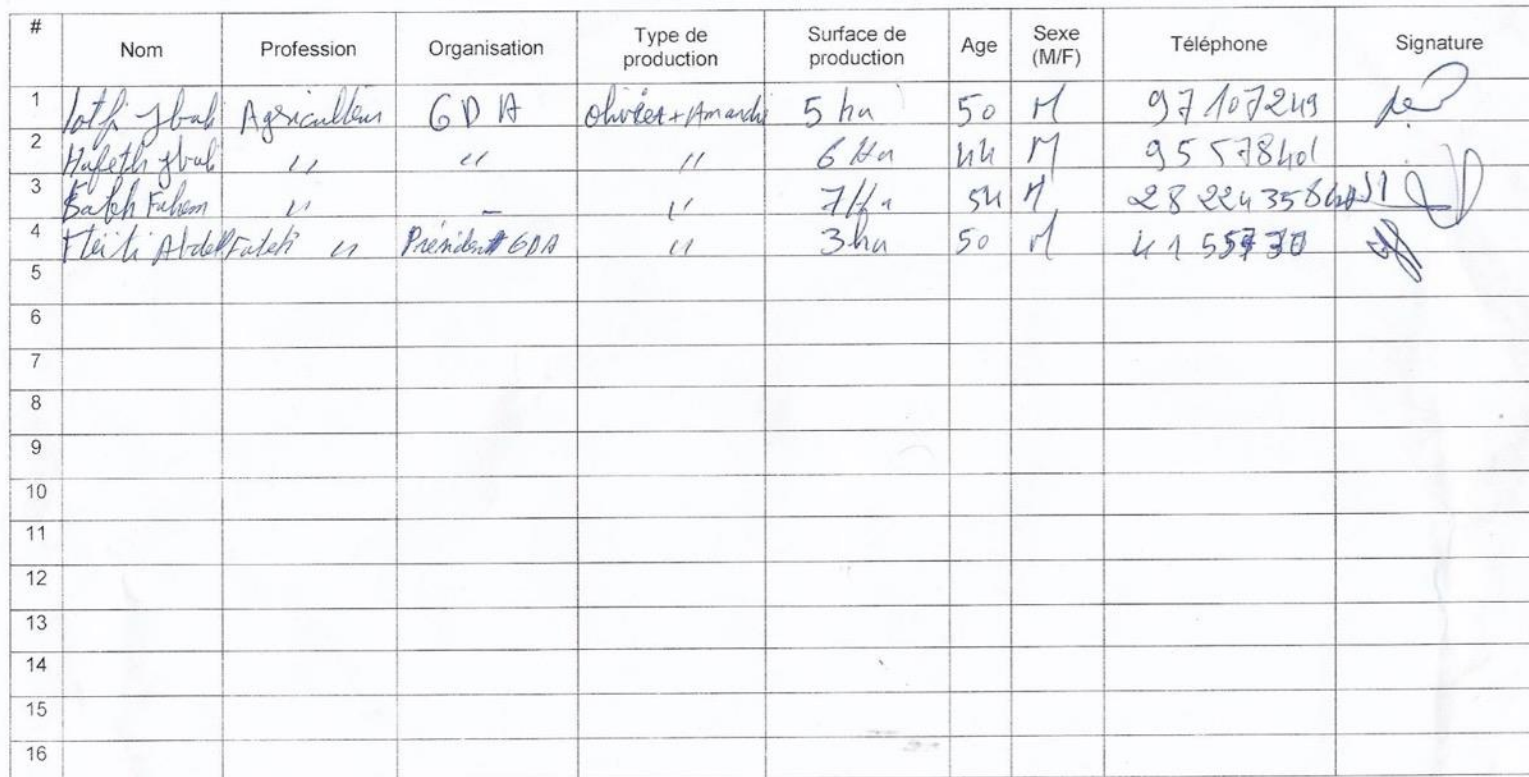 # Nom Profession Organisation Type de production Surface de production Age Sexe (M/F) Téléphone Signature
1 lotfi Jbali Agriculteur GDA olivier+Amandi 5 ha 50 M 97107249
2 Hafeth Jbali " " " 6 Ha 44 M 95578401
3 Fahem " - " 7 Ha 54 M
4 Fteiti Abdel Fateh " Président GDA " 3 ha 50 M
5
6
7
8
9
10
11
12
13
14
15
16